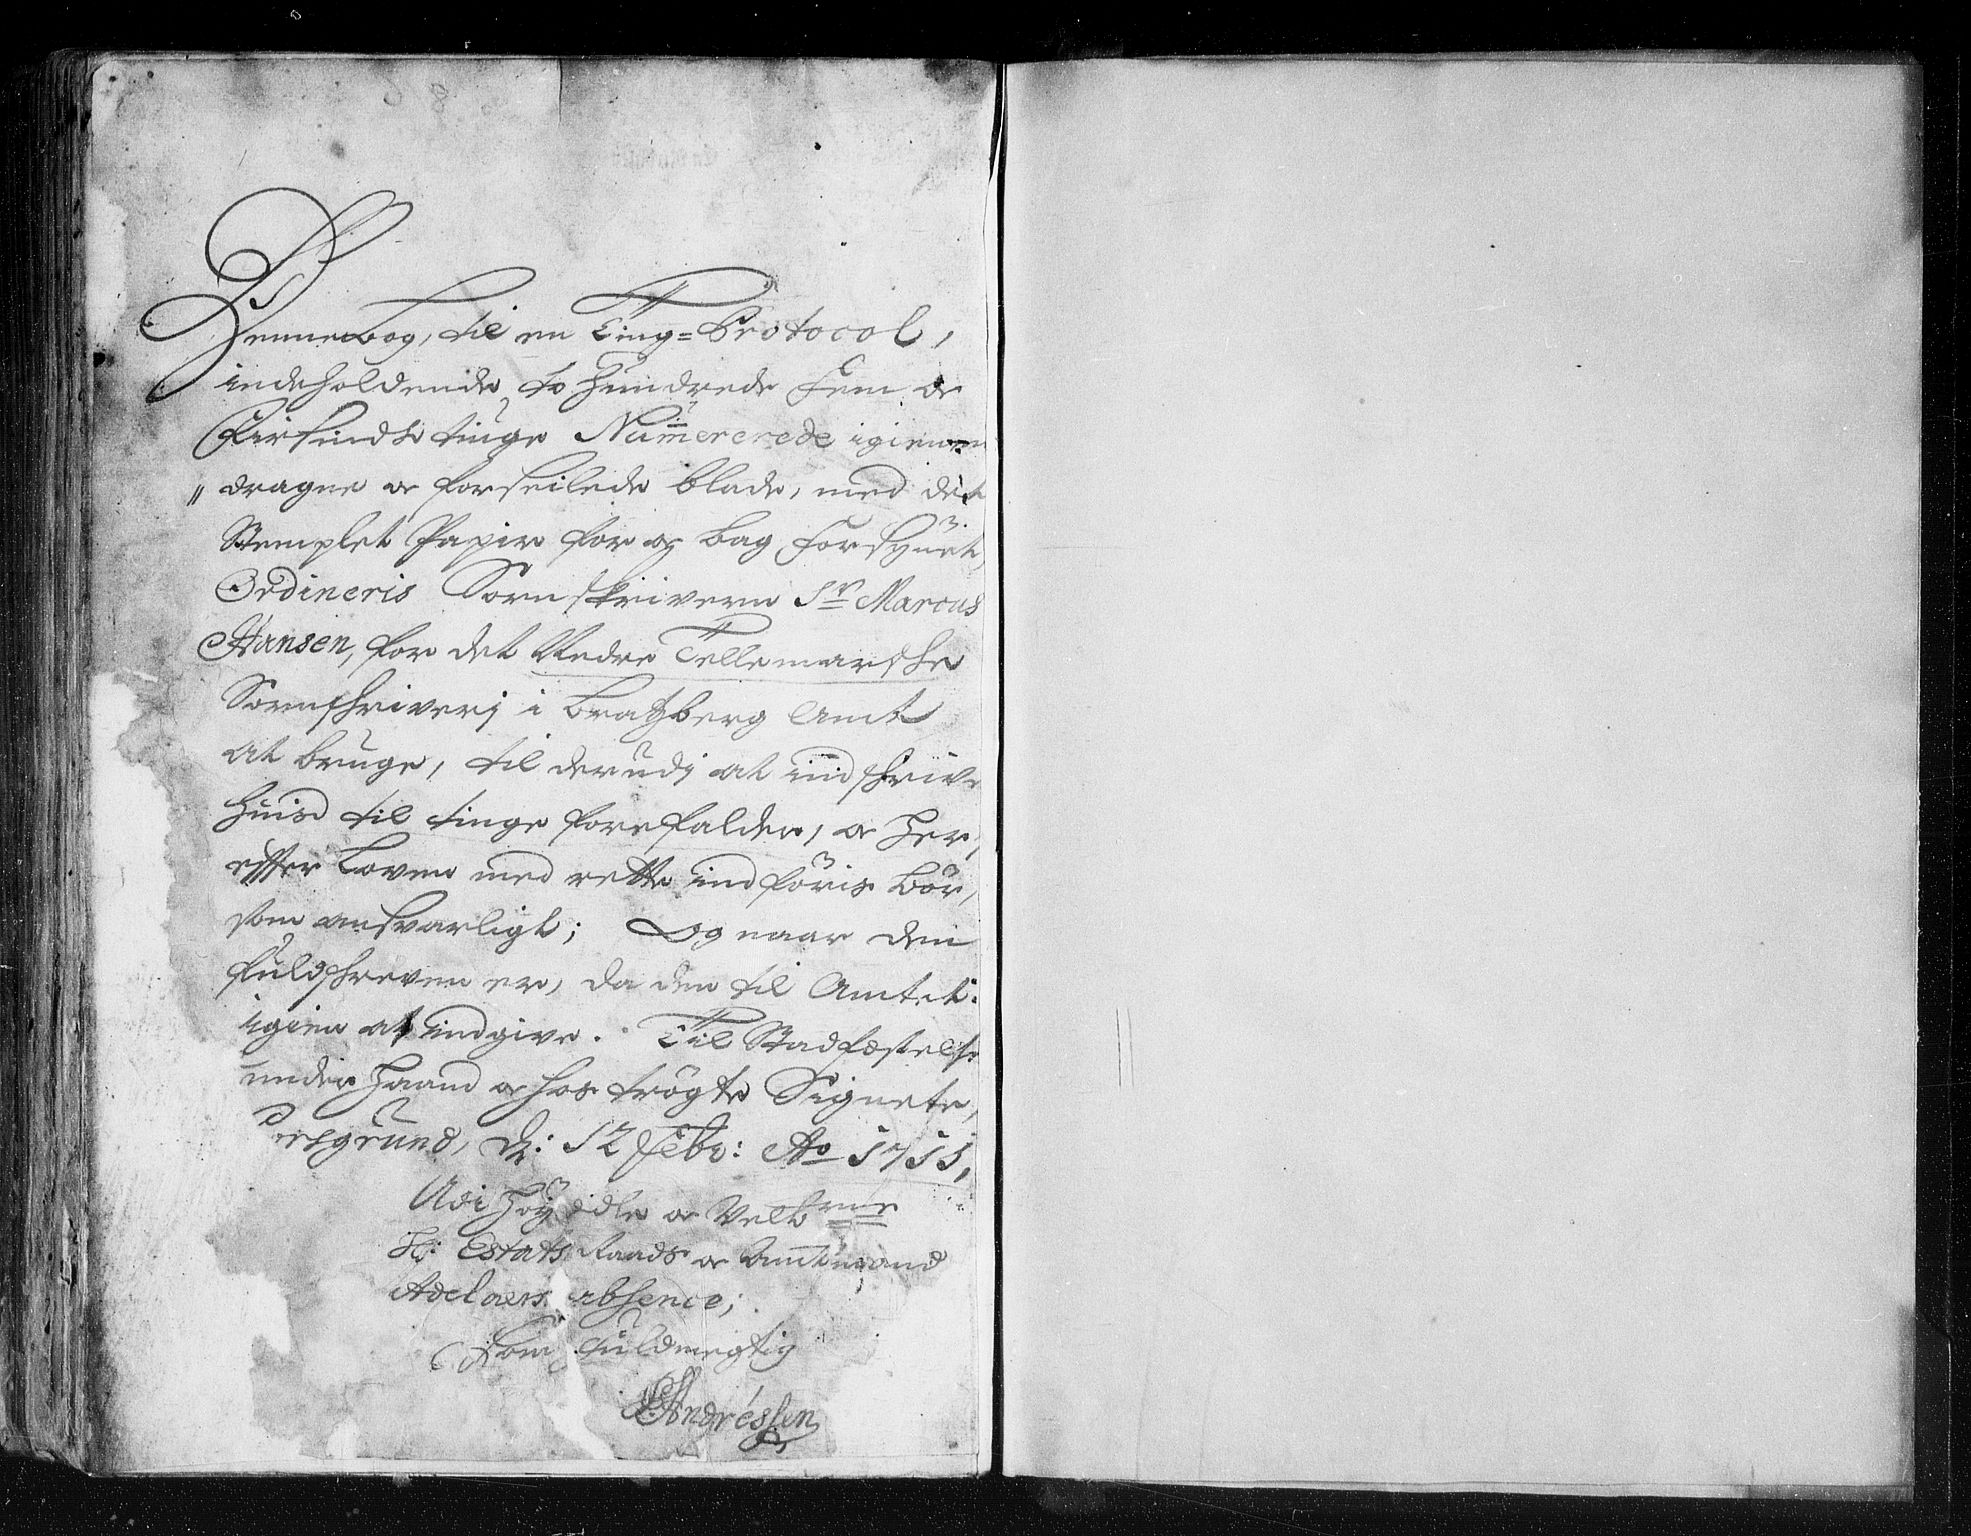 Denne bog, til en Ting=Protocol,
indeholdende to Hundrede Fem og
Firsindstiuge Numererede igiennem
dragne og forseilede blade, med det
Stemplet Papir for og bag forsÿnet,
Ordineris Sornskriveren Sr Marcus
Hansen, for det Nedre Tellemarkske
Sornskriverj i Bratzberg Amt
at bruge, til derudj at indskrive
huis til tinge forefalder, og Her,
effter Loven med rette indföris bör,
som ansvarligt; Og naar den
fuldskreven er, da den til Amtet
igien at indgive. Til Stadfæstelse
under Haand og hos trögte Signete,
ersgrund, d: 12 Febr: Ao 1711,
Udi Höÿ ædle og Velbrne
Hr: Estats Raads og Amtmand
Adelaers absence;
Som fuldmegtig
Andréssen